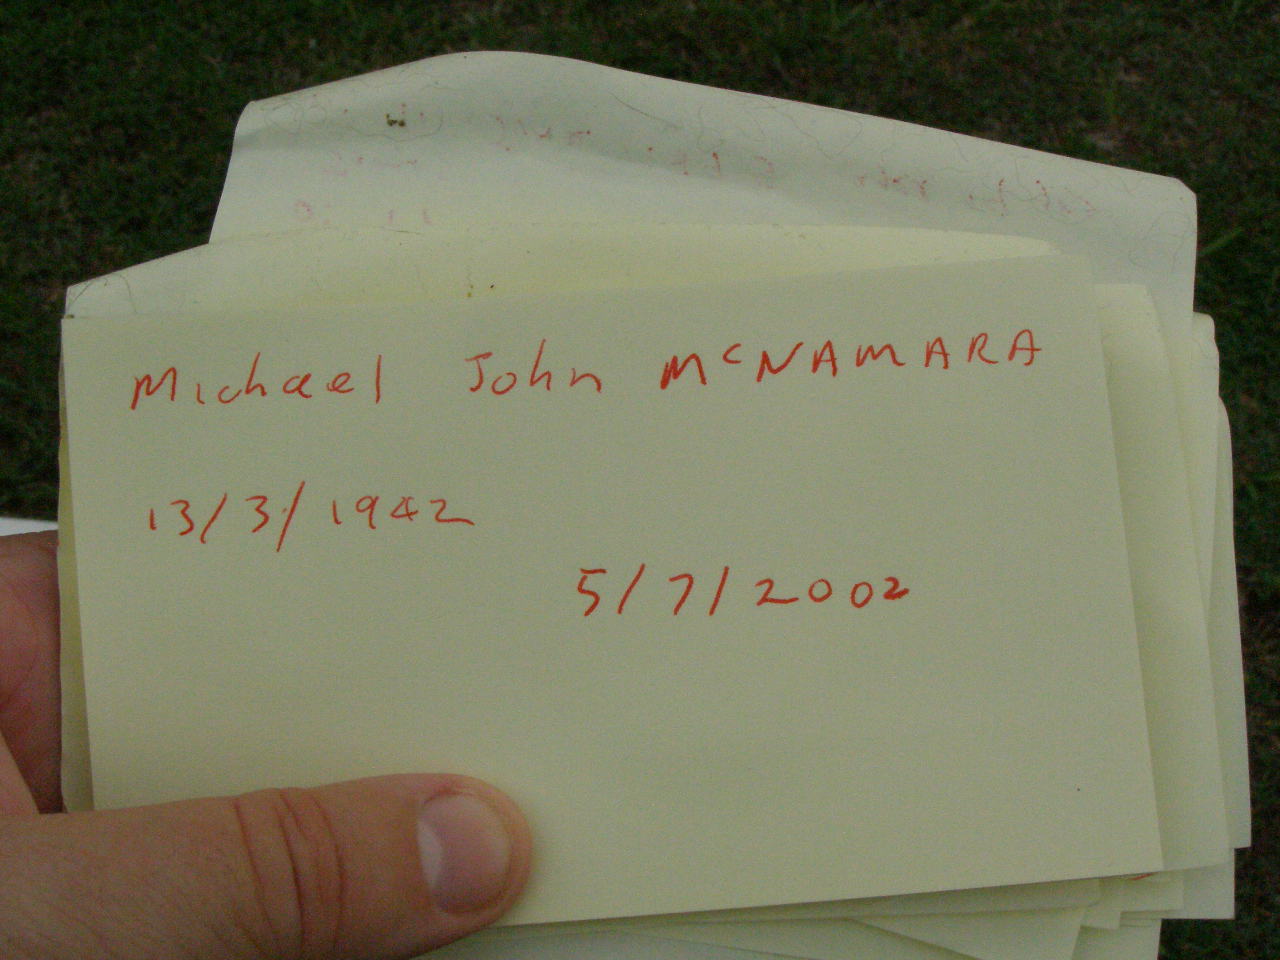 Michael John McNAMARA
13/3/1942
5/7/2002